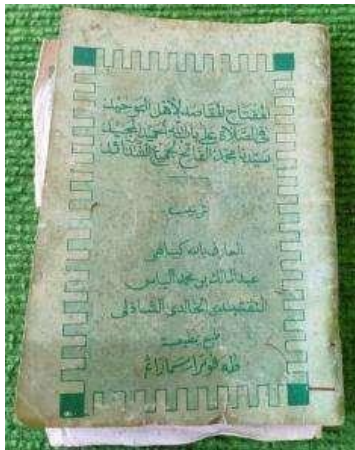 المفتاح المقاصد لأهل التوحيد
في الصلاة على باب الله الحميد المجيد
سيدنا محمد الفاتح لجميع الشدائد
ترتيب
العارف بالله كياهي
عبد المالك بن محمد الياس
النقشبندي الخالدي الشاذلي
طبع بمطبعة
طه فوترا سماراڠ